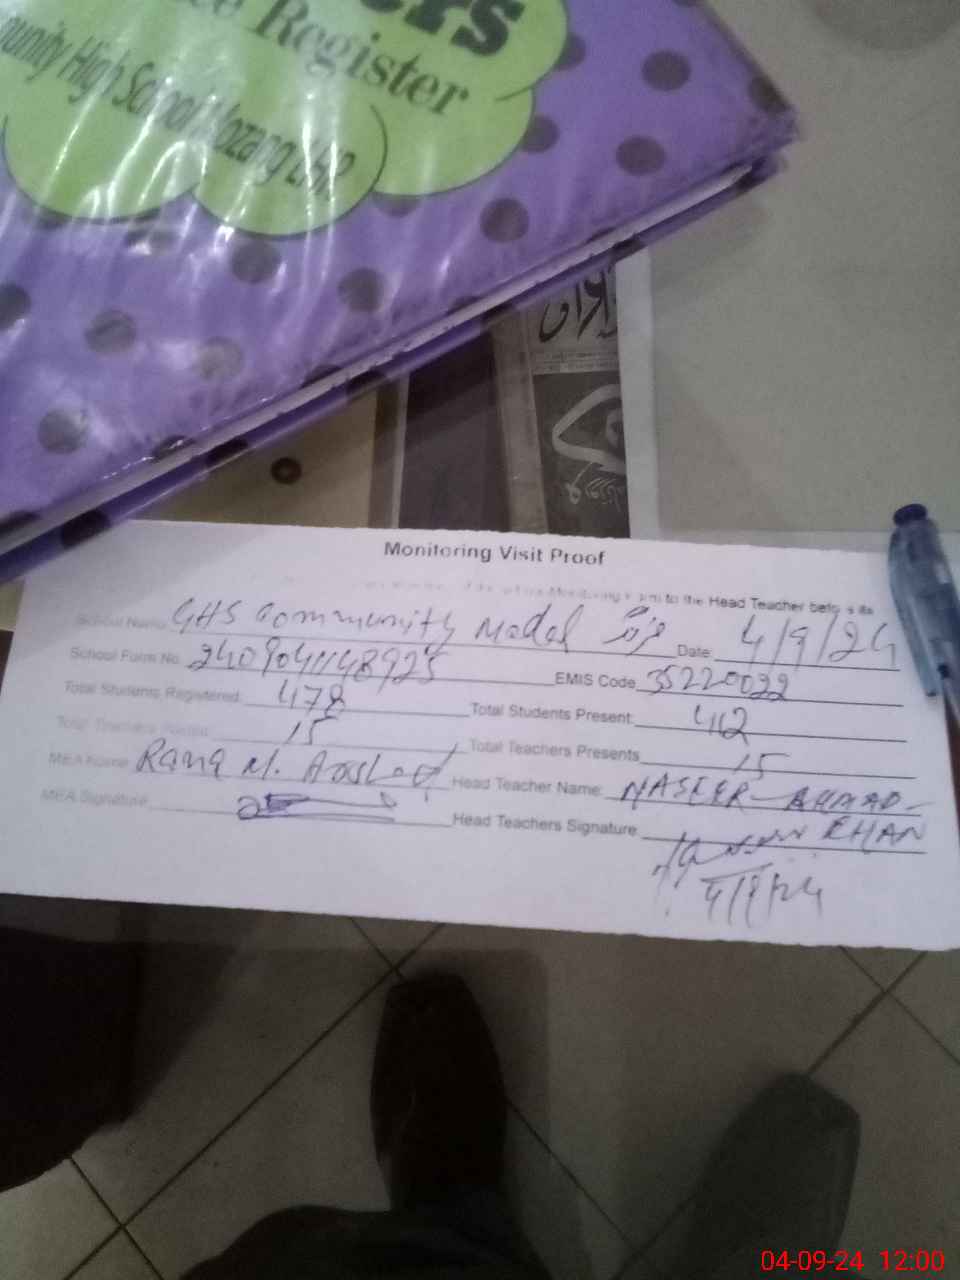 Register
High School Mozang LHR
Monitoring Visit Proof
to the Head Teacher
School Name GHS Community Model مزنگ Date 4/9/24
School Form No. EMIS Code 35220022
Total Students Registered: 478 Total Students Present: 412
Total Teachers 15 Total Teachers Presents 15
MEA Name: Rana M. Arshad Head Teacher Name: NASEER AHMAD
KHAN
MEA Signature Head Teachers Signature
4/9/24
04-09-24 12:00